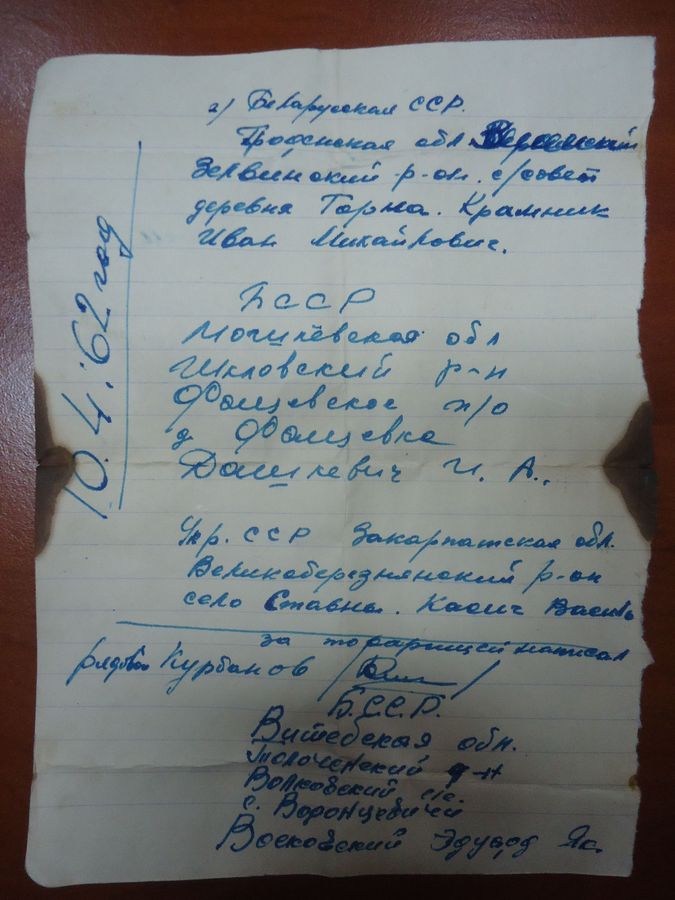 г) Беларусская ССР.
Гродненская обл.
Зелвинский р-он. с/совет
деревня Горна. Крамник
Иван Михайлович.
БССР
Могилёвская обл
Шкловский р-н
Фащевское п/о
д Фащевка
Дашкевич И. А..
Укр. ССР Закарпатская обл.
Великоберезнянский р-он
село Ставны. Касич Василь
за товарищей написал
рядовой Курбанов
Б.С.С.Р.
Витебская обл.
Толоченский р-н
Волковский с/с.
с. Воронцевичи
Восковский Эдуард Як.
10.4.62 год